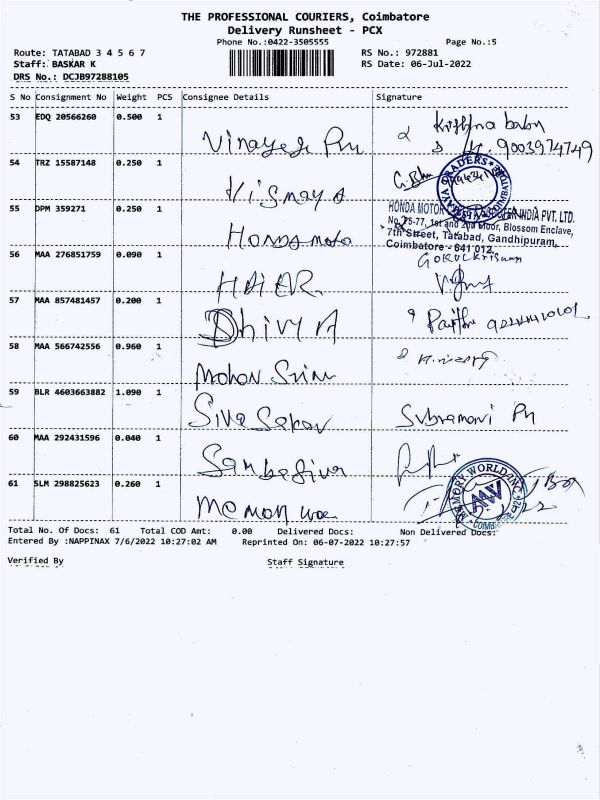 THE PROFESSIONAL COURIERS, Coimbatore
Delivery Runsheet - PCX
Phone No.:0422-3505555
Page No.:5
Route: TATABAD 3 4 5 6 7
RS No.: 972881
Staff: BASKAR K
RS Date: 06-Jul-2022
DRS No.: DCJB97288105
S No Consignment No Weight PCS Consignee Details Signature
53 EDQ 20566260 0.500 1
Krishna babu
9003974749
54 TRZ 15587148 0.250 1
TRADERS
Vismaya
55 DPM 359271 0.250 1
HONDA MOTOR INDIA PVT. LTD.
No. 75-77, 1st and 2nd Floor, Blossom Enclave,
7th Street, Tatabad, Gandhipuram,
Honda moto
Coimbatore - 641 012.
56 MAA 276851759 0.090 1
Gokulkrisnan
HAIAR
57 MAA 857481457 0.200 1
Dhivya
58 MAA 566742556 0.960 1
Mohan
59 BLR 4603663882 1.090 1
Siva Sekar Subramani
60 MAA 292431596 0.040 1
Sambasiva
61 SLM 298825623 0.260 1
MEMORY WORLD INC.
Total No. Of Docs: 61 Total COD Amt: 0.00 Delivered Docs: Non Delivered Docs:
Entered By :NAPPINAX 7/6/2022 10:27:02 AM Reprinted On: 06-07-2022 10:27:57
Verified By Staff Signature